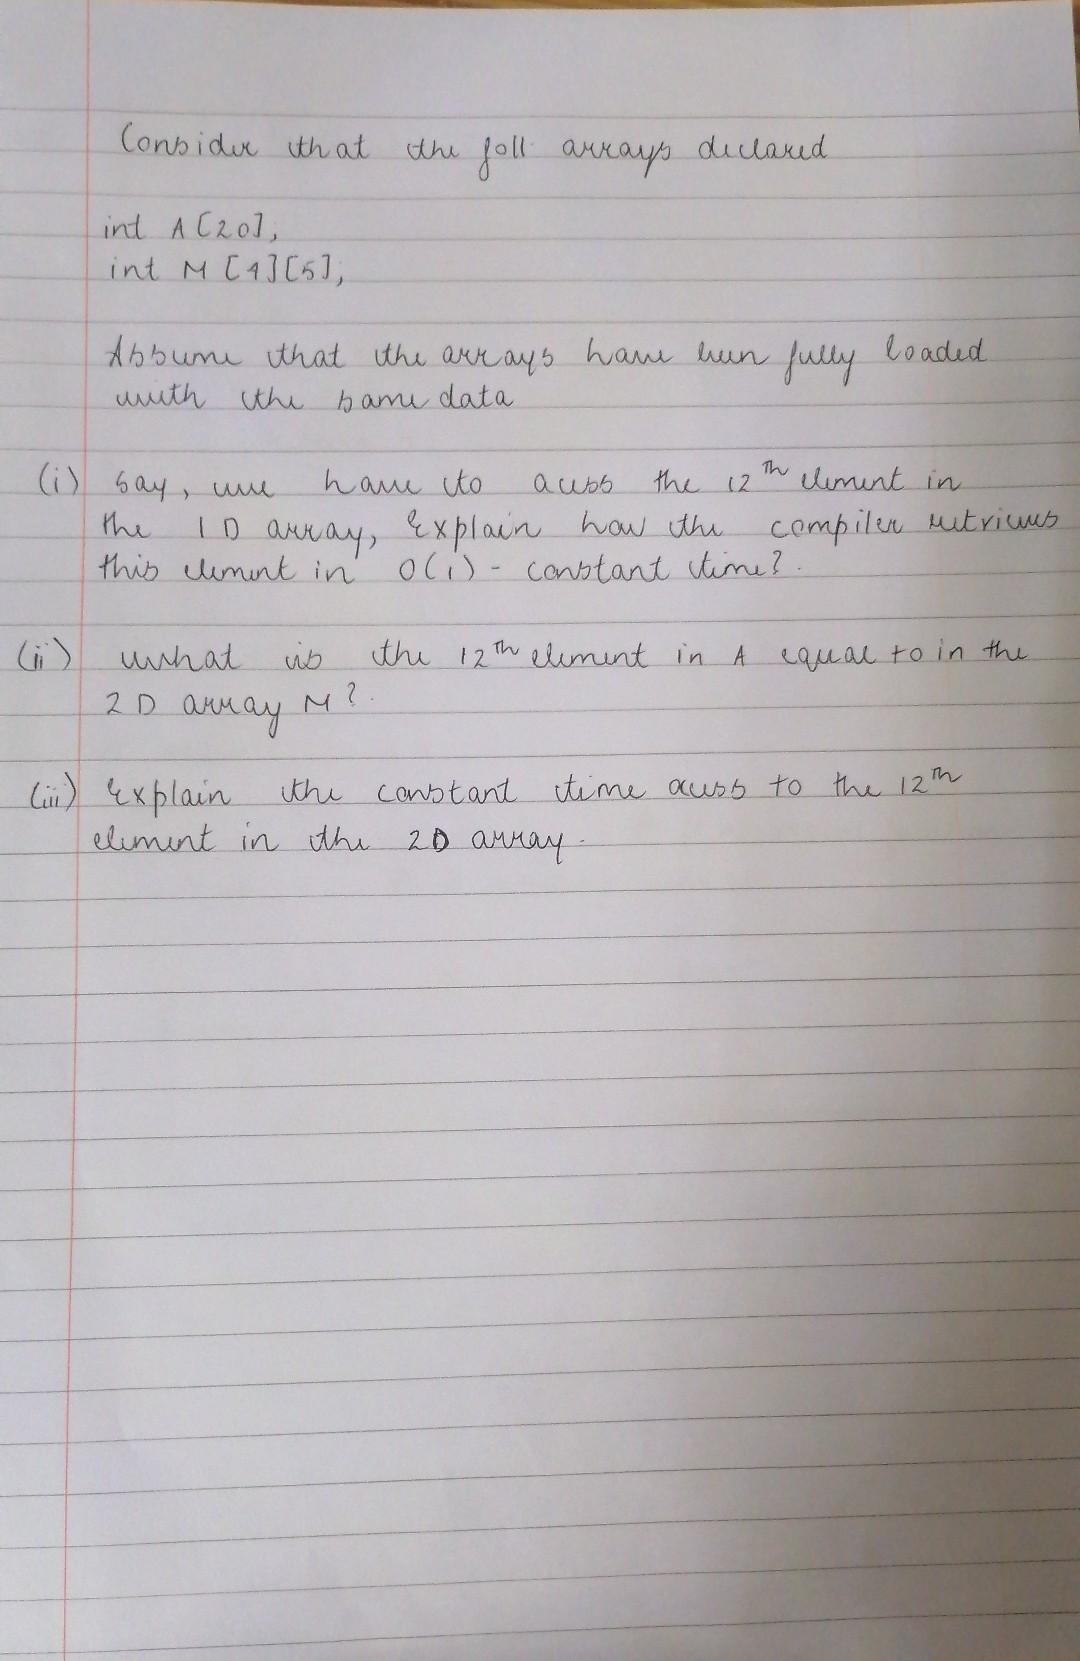 Consider that the foll arrays declared
int A[20],
int M[4][5],
Assume that the arrays have been fully loaded
with the same data
(i) Say, we have to access the 12th element in
the 1D array, Explain how the compiler retrieves
this element in O(1) - constant time?.
(ii) What is the 12th element in A equal to in the
2D array M?.
(iii) Explain the constant time access to the 12th
element in the 2D array.